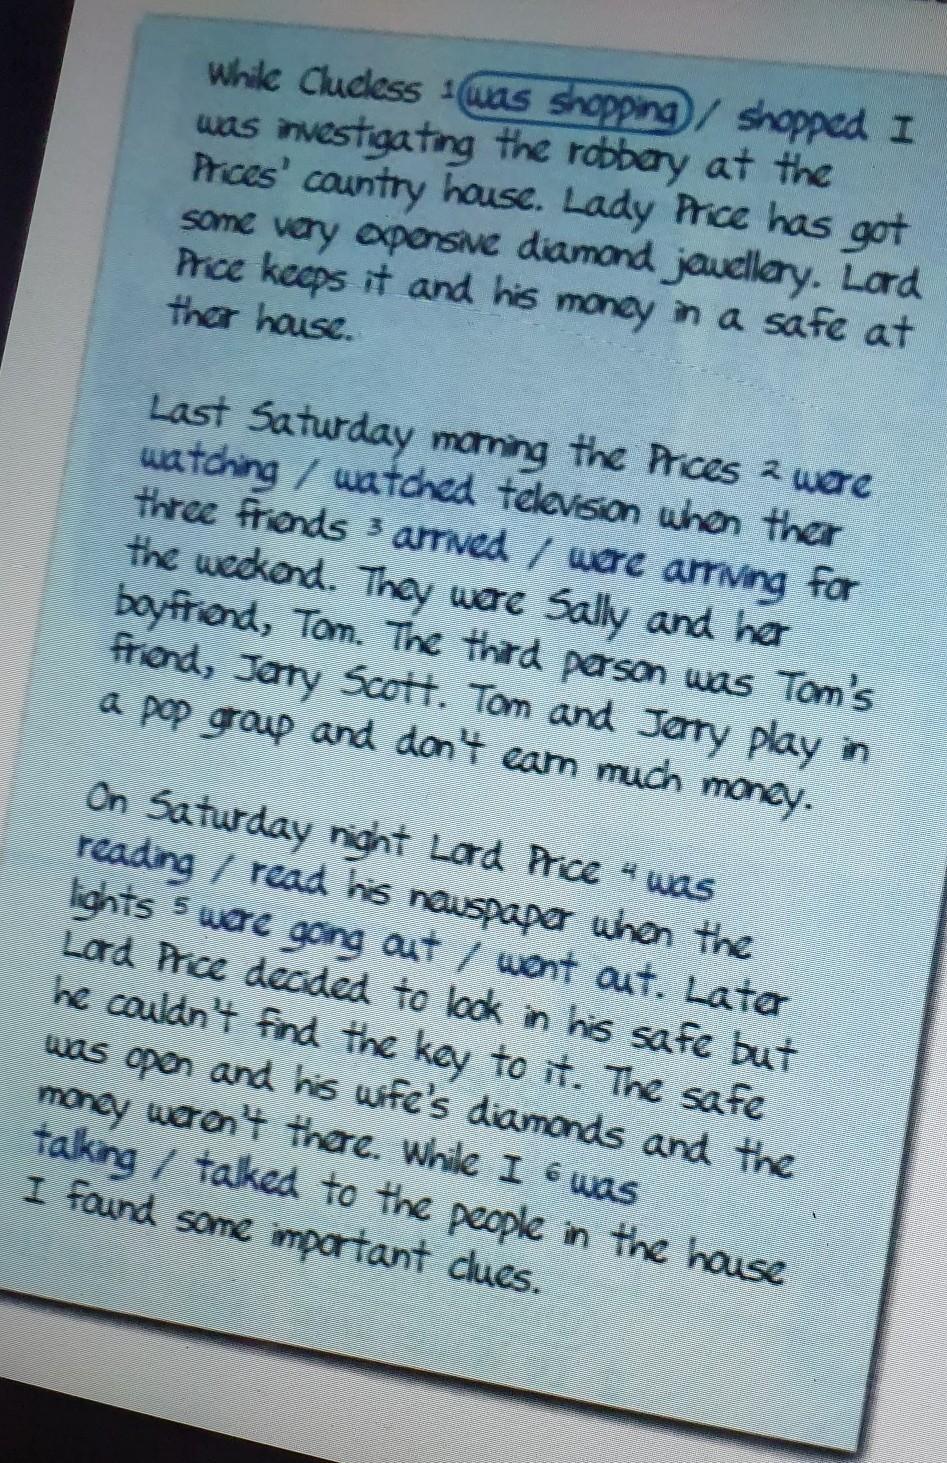 While Clueless 1 was shopping / shopped I
was investigating the robbery at the
Prices' country house. Lady Price has got
some very expensive diamond jewellery. Lord
Price keeps it and his money in a safe at
their house.
Last Saturday morning the Prices 2 were
watching / watched television when their
three friends 3 arrived / were arriving for
the weekend. They were Sally and her
boyfriend, Tom. The third person was Tom's
friend, Jerry Scott. Tom and Jerry play in
a pop group and don't earn much money.
On Saturday night Lord Price 4 was
reading / read his newspaper when the
lights 5 were going out / went out. Later
Lord Price decided to look in his safe but
he couldn't find the key to it. The safe
was open and his wife's diamonds and the
money weren't there. While I 6 was
talking / talked to the people in the house
I found some important clues.